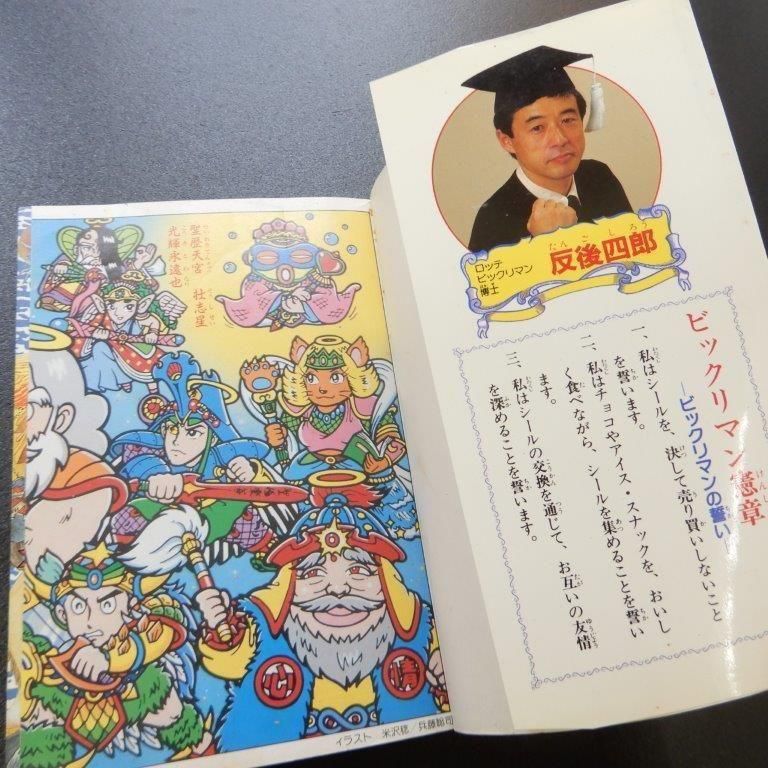 聖歴天宮 壮志星
光輝永遠也
心
情
イラスト 米沢稔/兵藤聡司
ロッテ
ビックリマン
博士
反後四郎
たんごしろう
ビックリマン憲章
―ビックリマンの誓い―
一、私はシールを、決して売り買いしないこと
を誓います。
二、私はチョコやアイス・スナックを、おいし
く食べながら、シールを集めることを誓い
ます。
三、私はシールの交換を通じて、お互いの友情
を深めることを誓います。